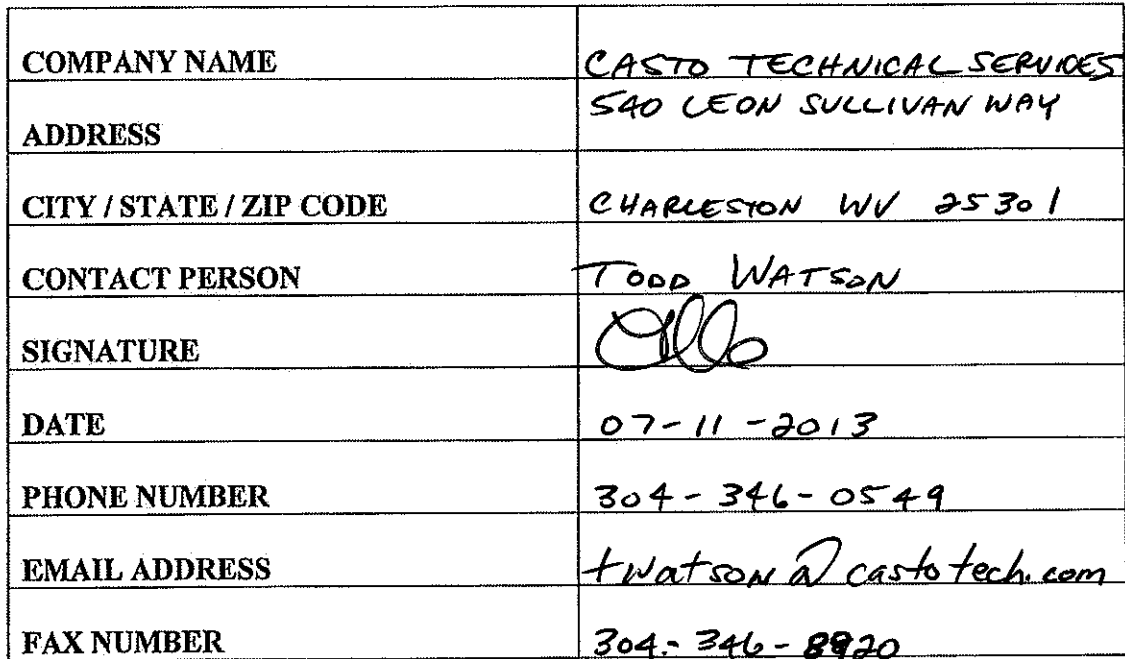 COMPANY NAME CASTO TECHNICAL SERVICES
540 LEON SULLIVAN WAY
ADDRESS
CITY / STATE / ZIP CODE CHARLESTON WV 25301
CONTACT PERSON TODD WATSON
SIGNATURE
DATE 07-11-2013
PHONE NUMBER 304-346-0549
EMAIL ADDRESS twatson@castotech.com
FAX NUMBER 304-346-8920